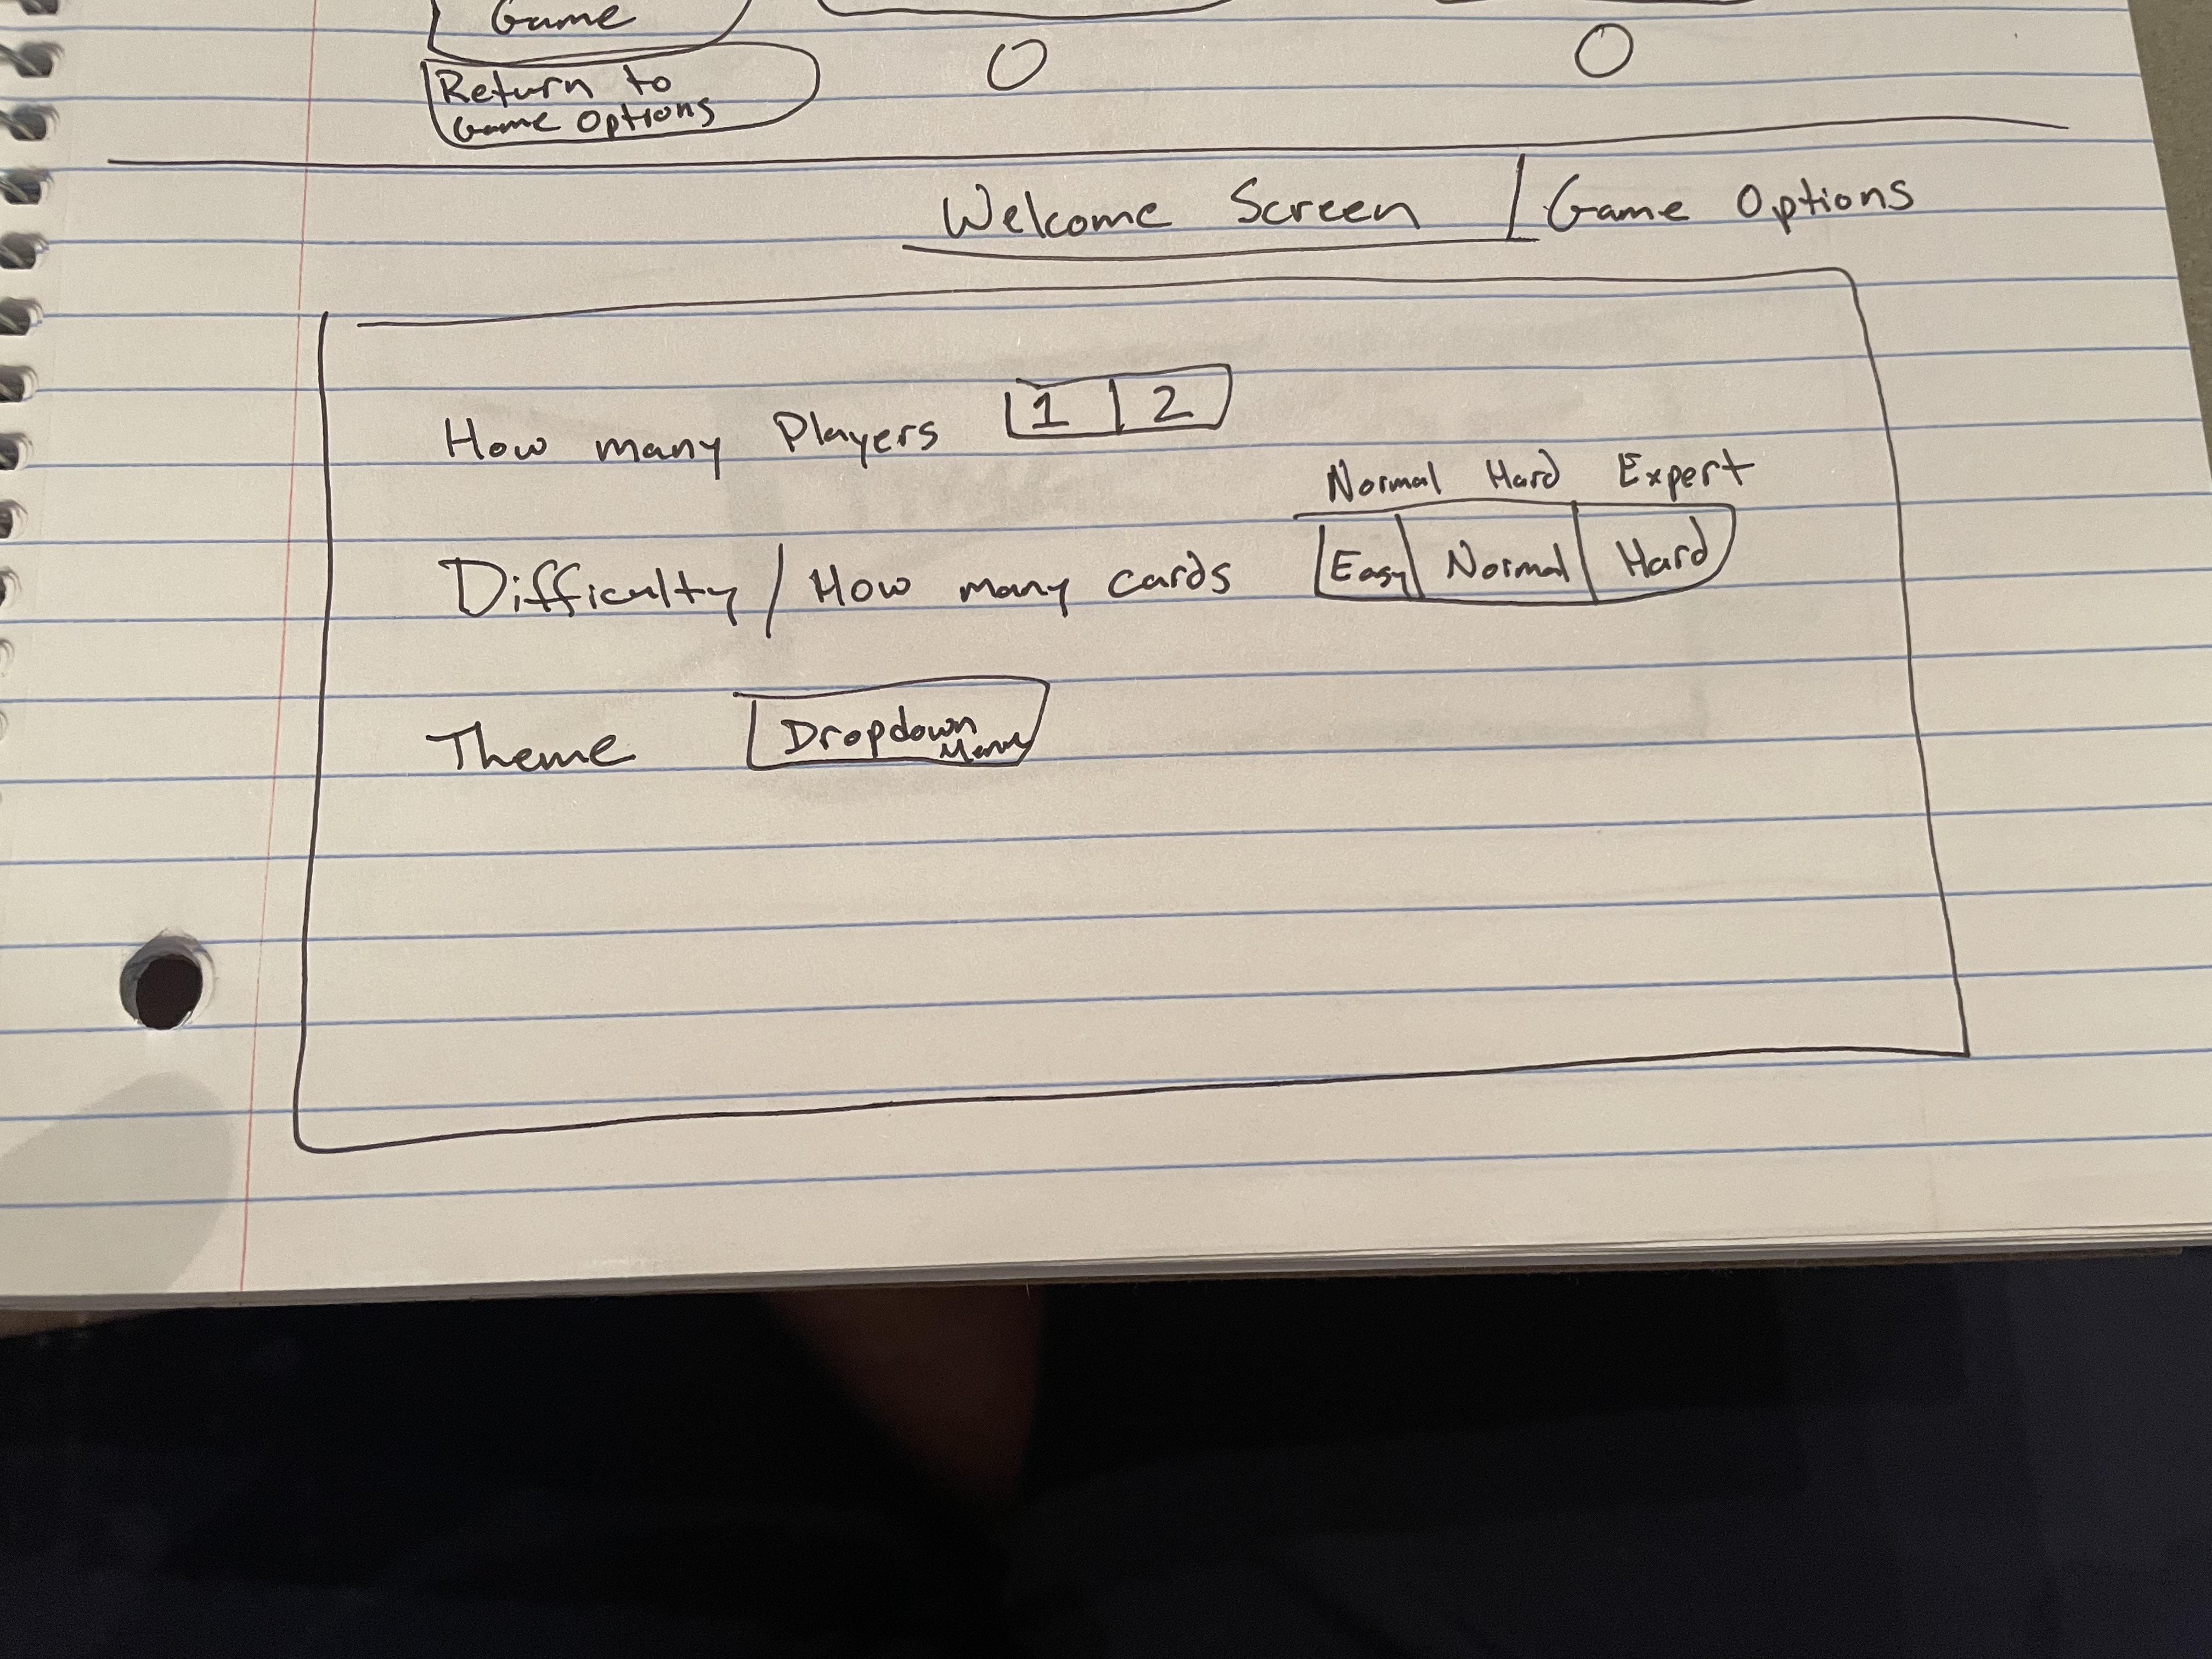 Game
Return to
Game Options
O O
Welcome Screen / Game Options
How many Players 1 2
Normal Hard Expert
Difficulty / How many cards Easy Normal Hard
Theme Dropdown
Menu